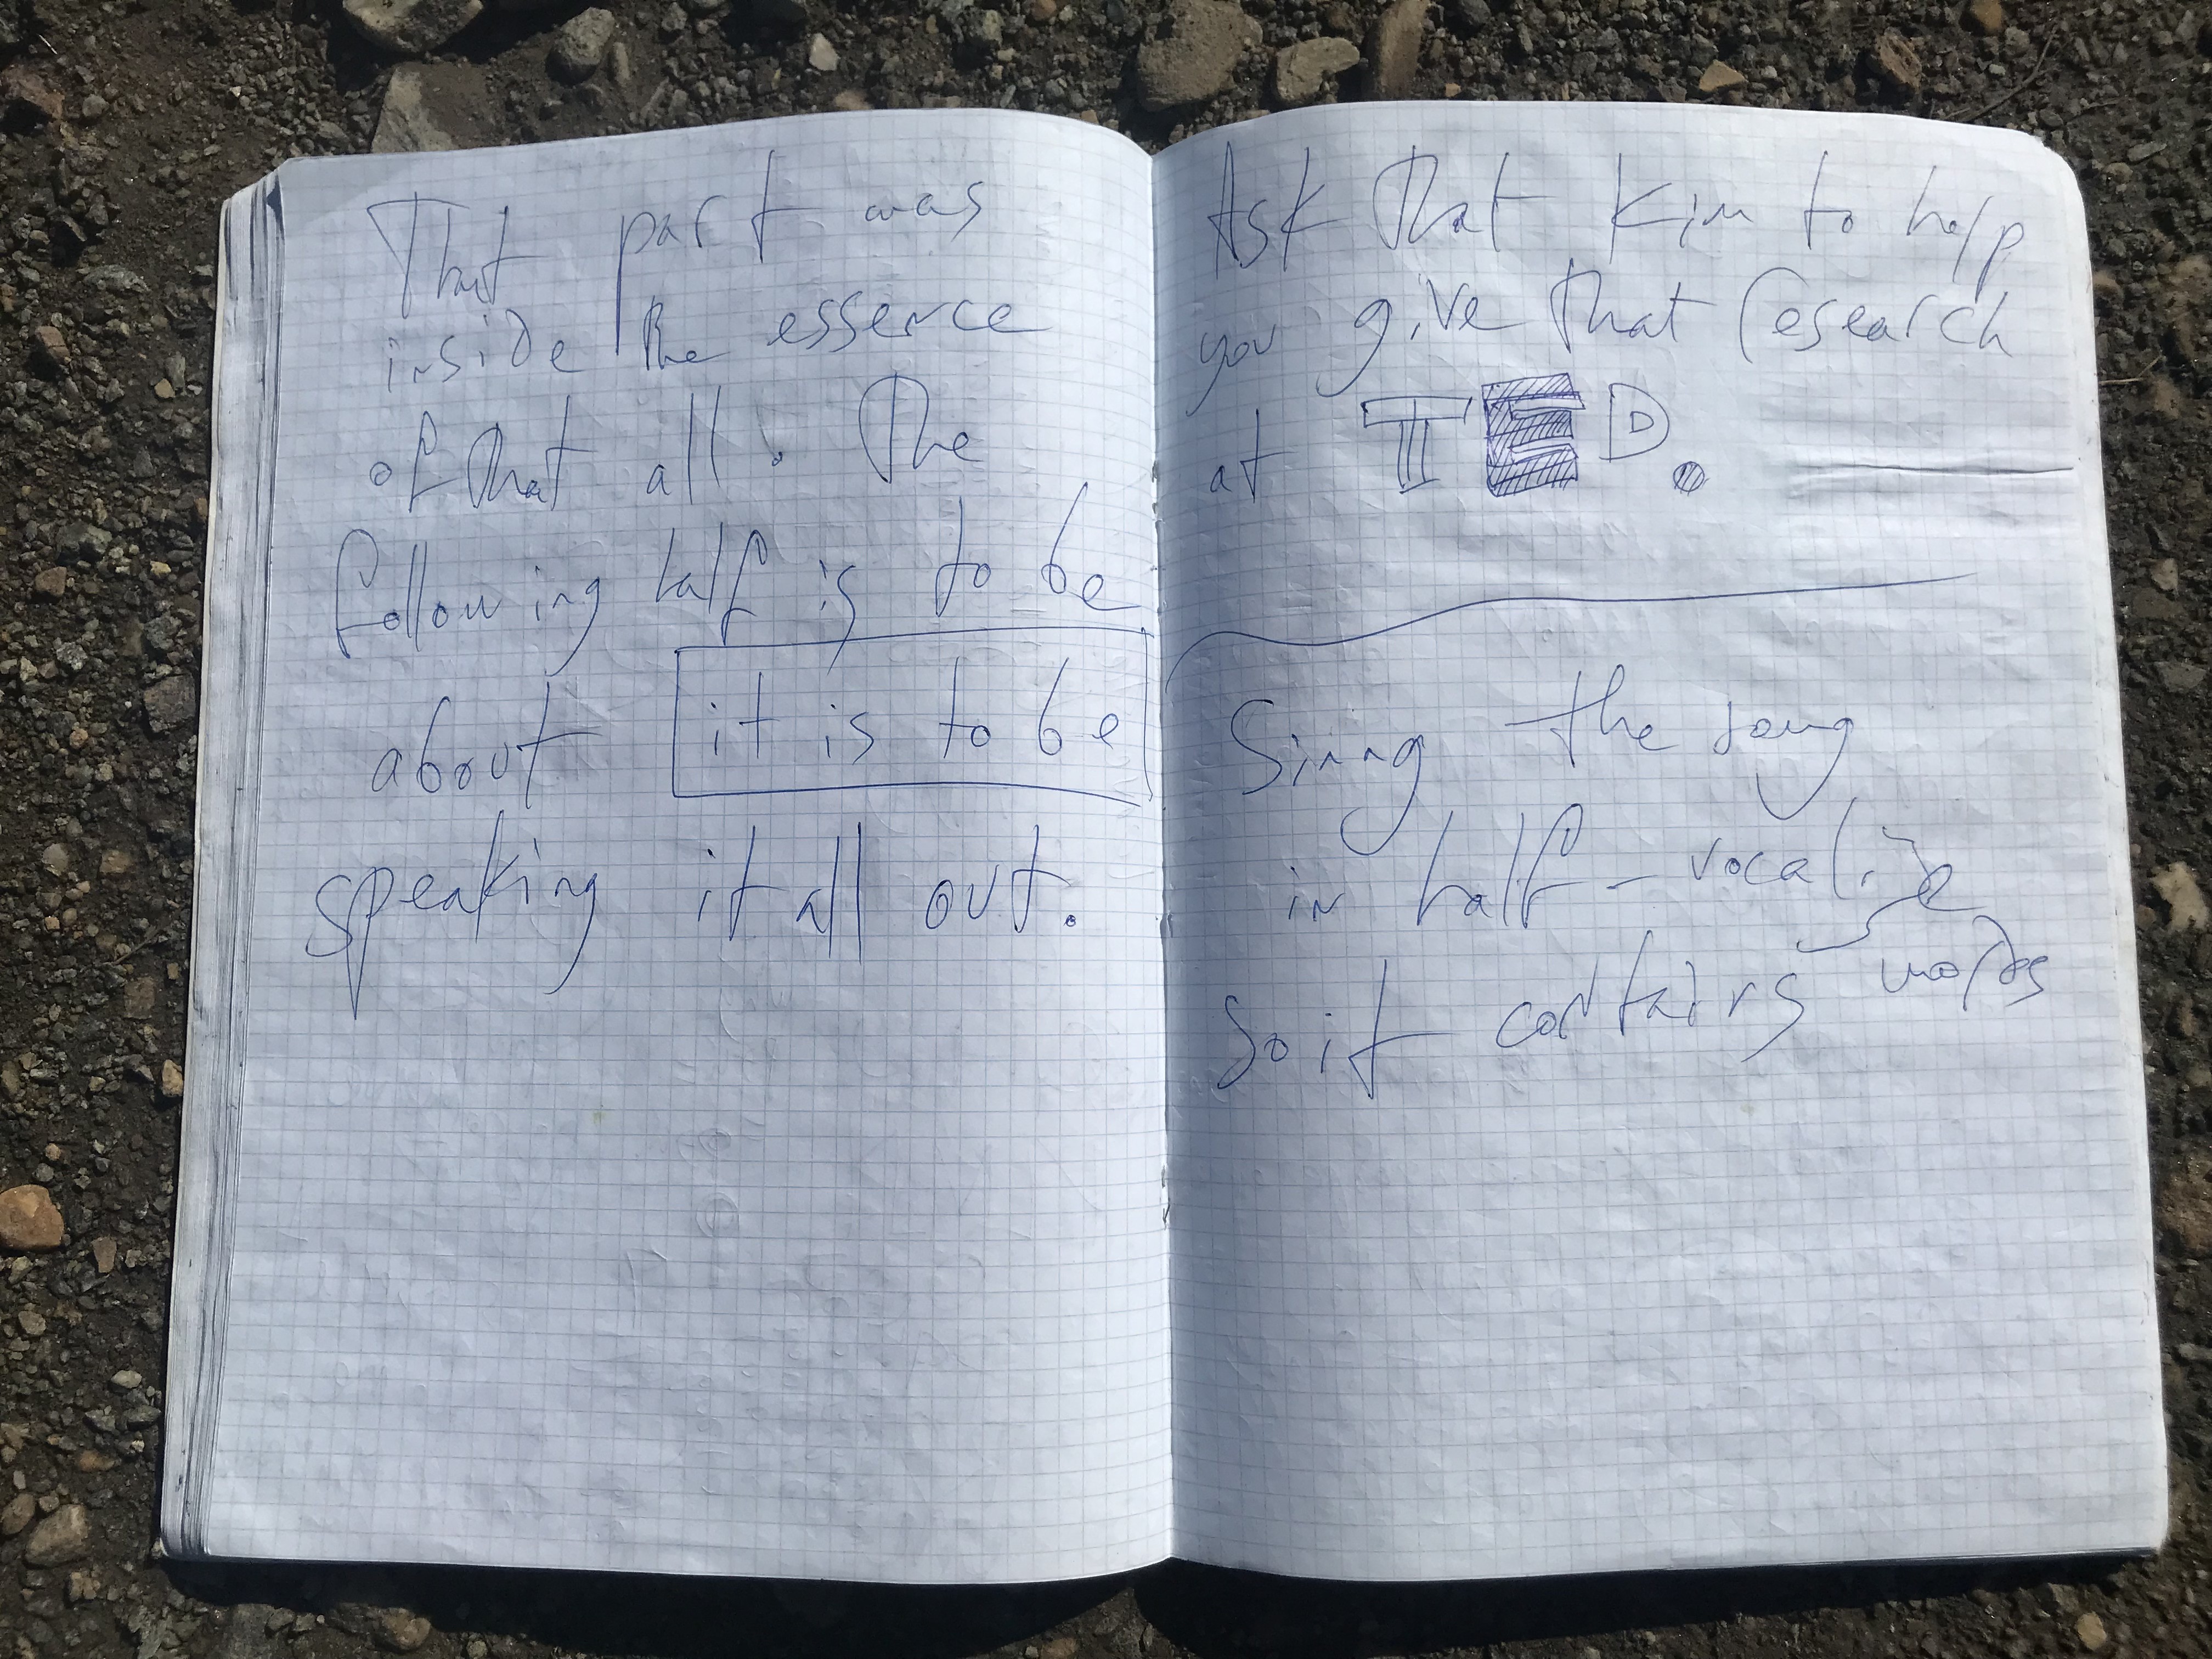 That part was
inside the essence
of that all. The
following half is to be
about it is to be
speaking it all out.
Ask that Kim to help
you give that research
at TED.
Sing the song
in half-vocalise
so it contains notes